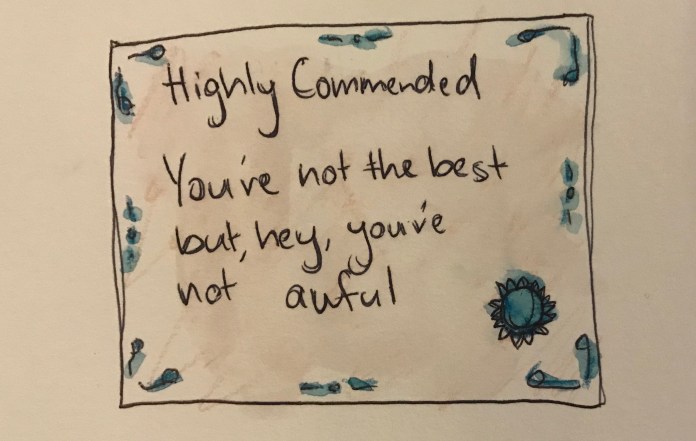 Highly Commended
You've not the best
but, hey, you've
not awful